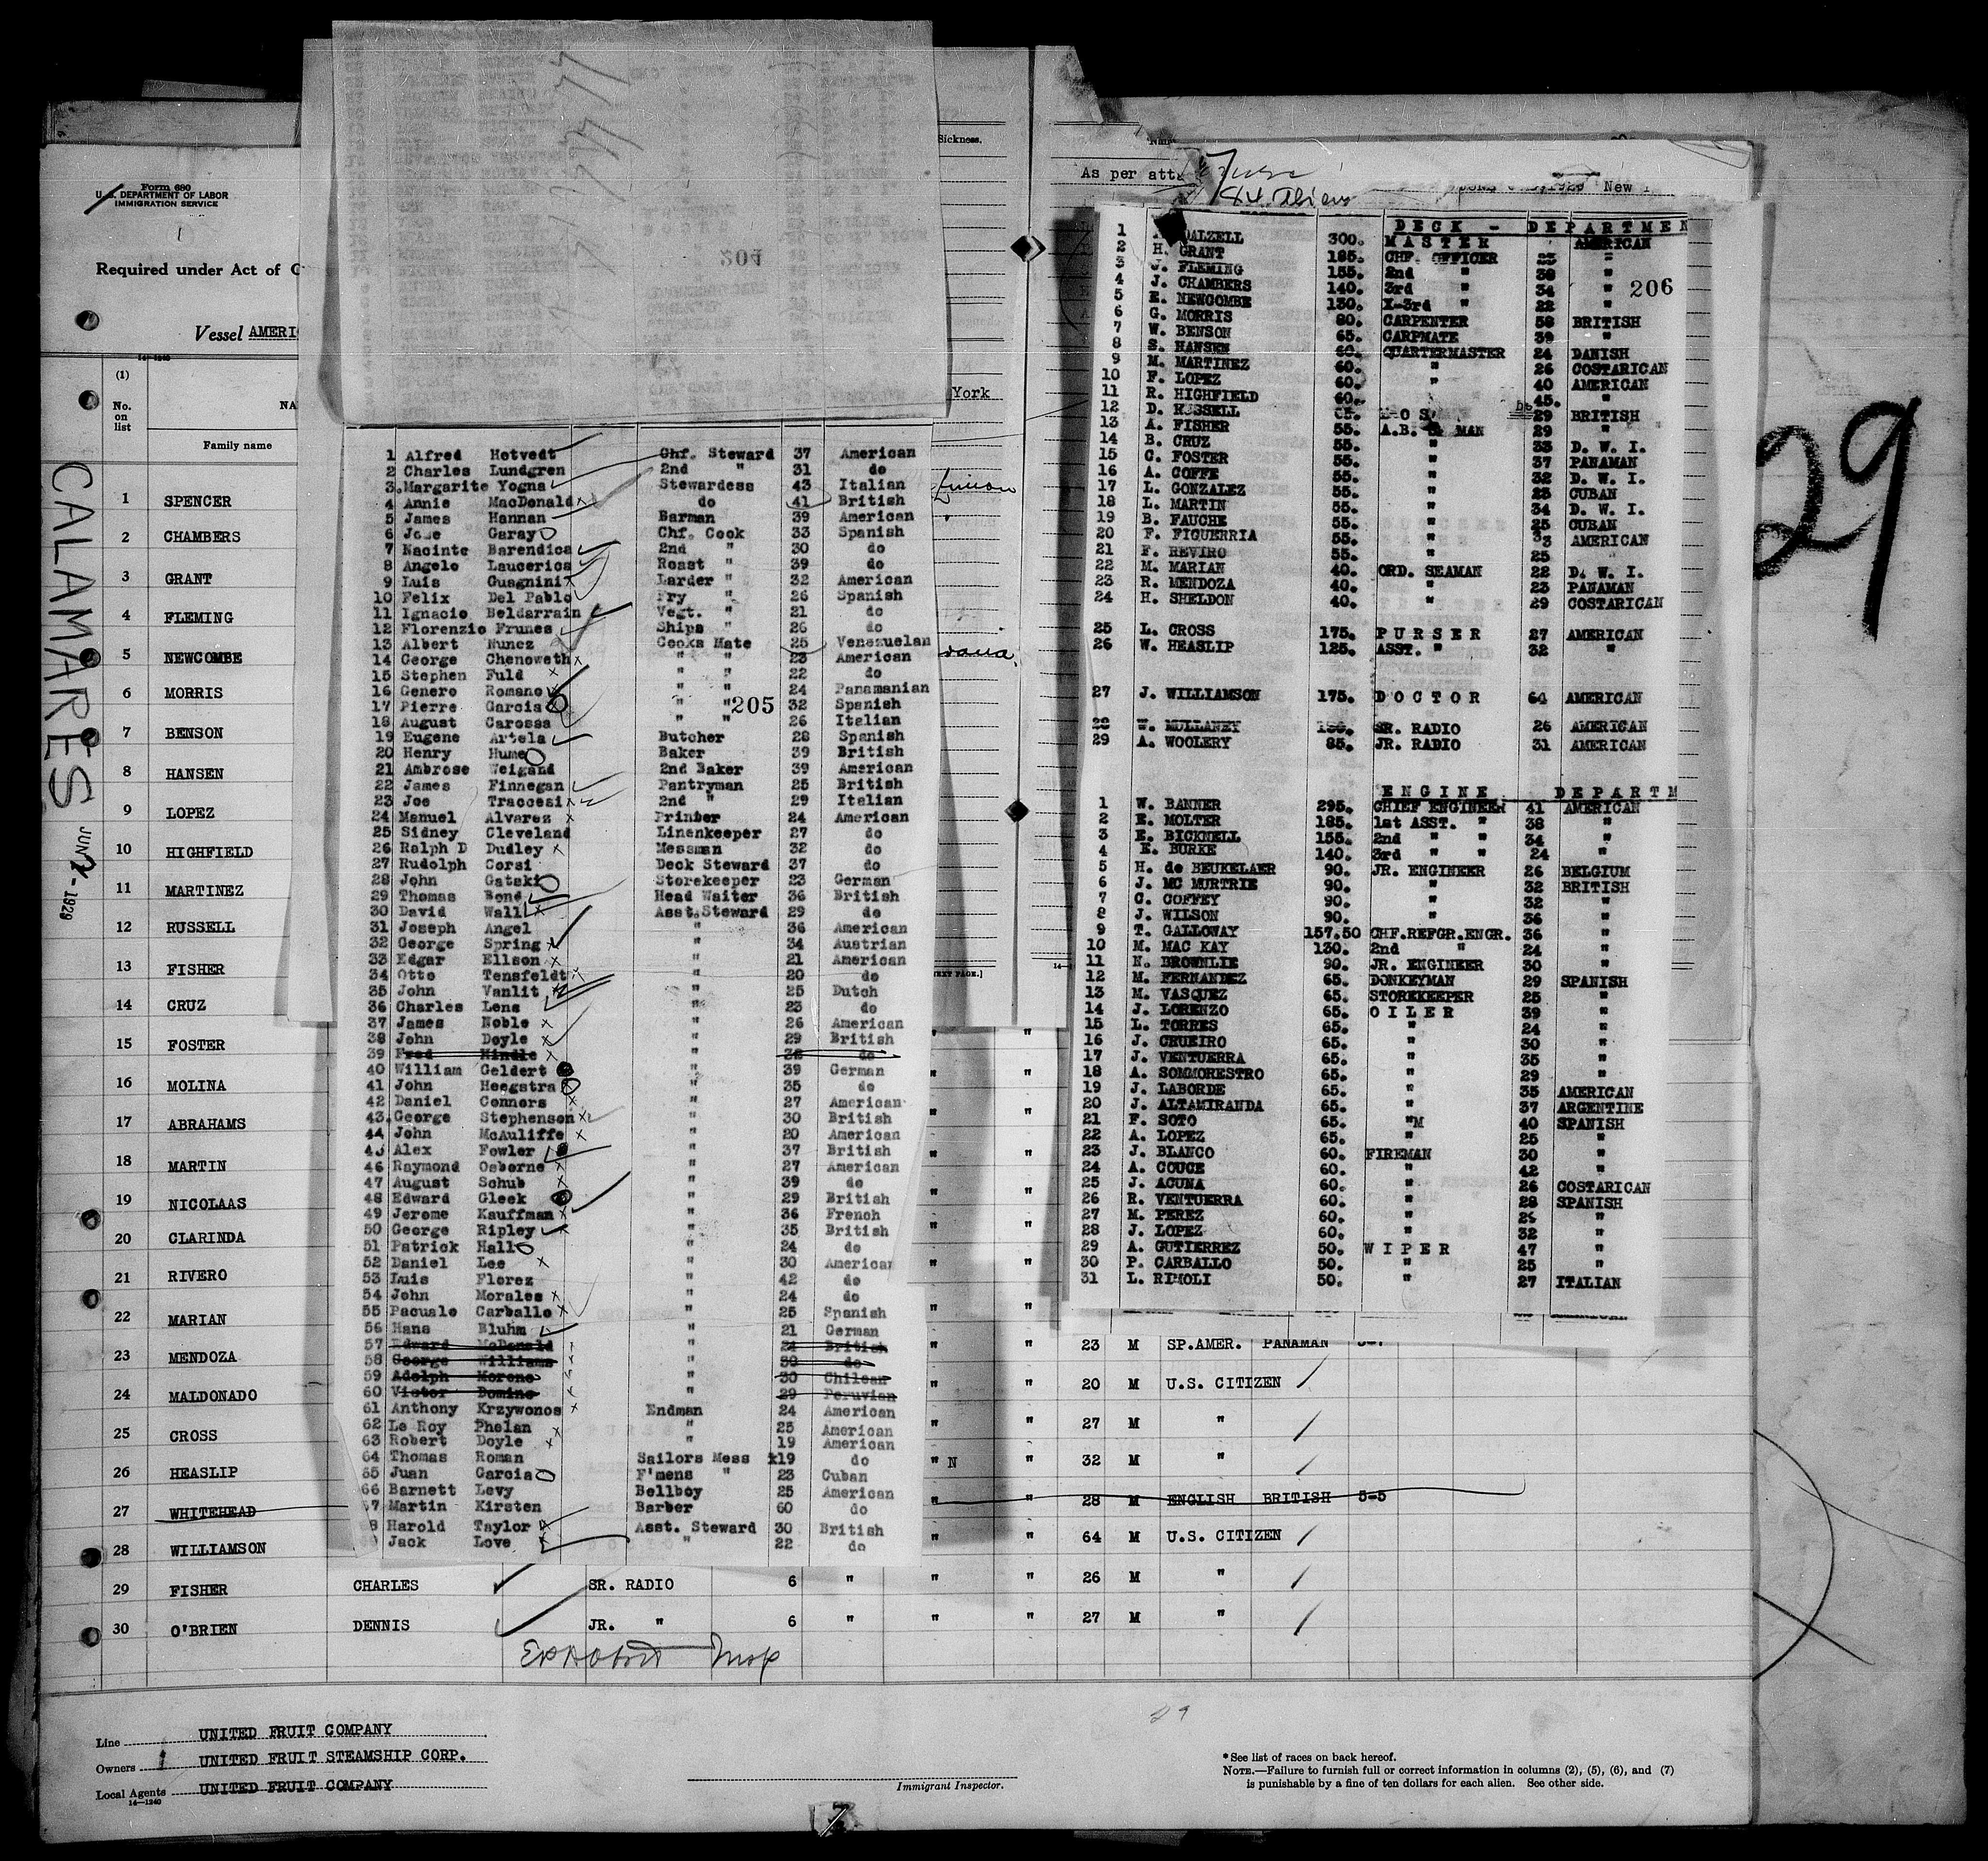 Form 680
U.S. DEPARTMENT OF LABOR
IMMIGRATION SERVICE
Required under Act of
Vessel AMERI
14-1240
(1)
No. on list
NA
Family name
1 SPENCER
2 CHAMBERS
3 GRANT
4 FLEMING
5 NEWCOMBE
6 MORRIS
7 BENSON
8 HANSEN
9 LOPEZ
10 HIGHFIELD
11 MARTINEZ
12 RUSSELL
13 FISHER
14 CRUZ
15 FOSTER
16 MOLINA
17 ABRAHAMS
18 MARTIN
19 NICOLAAS
20 CLARINDA
21 RIVERO
22 MARIAN
23 MENDOZA
24 MALDONADO
25 CROSS
26 HEASLIP
27 WHITEHEAD
28 WILLIAMSON
29 FISHER CHARLES SR. RADIO 6 " " " 26 M "
30 O'BRIEN DENNIS JR. " 6 " " " 27 M "
CALAMARES
JUN 2 - 1929
204
1 Alfred Hetvedt Chf. Steward 37 American
2 Charles Lundgren 2nd " 31 do
3. Margarite Yogna Stewardess 43 Italian
4 Annie MacDonald do 41 British
5 James Hannan Barman 39 American
6 Jose Garay Chf. Cook 33 Spanish
7 Nacinte Barendica 2nd " 30 do
8 Angelo Laucerica Roast " 39 do
9 Luis Guagnini Larder " 32 American
10 Felix Del Pablo Fry " 26 Spanish
11 Ignacio Beldarrain Vegt. " 21 do
12 Florenzio Frunes Ships " 26 do
13 Albert Nunez Cooks Mate 25 Venezuelan
14 George Chenoweth " " 23 American
15 Stephen Fuld " " 22 do
16 Genero Romano " " 24 Panamanian
17 Pierre Garcia " " 32 Spanish
205
18 August Carossa " " 26 Italian
19 Eugene Artela Butcher 28 Spanish
20 Henry Hume Baker 39 British
21 Ambrose Weigand 2nd Baker 39 American
22 James Finnegan Pantryman 25 British
23 Joe Traccesi 2nd " 29 Italian
24 Manuel Alvarez Printer 24 American
25 Sidney Cleveland Linenkeeper 27 do
26 Ralph D Dudley Messman 32 do
27 Rudolph Corsi Deck Steward 37 do
28 John Gatski Storekeeper 23 German
29 Thomas Bond Head Waiter 36 British
30 David Wall Asst. Steward 29 do
31 Joseph Angel " 36 American
32 George Spring " 34 Austrian
33 Edgar Ellson " 21 American
34 Otto Tensfeldt " 20 do
35 John Vanlit " 25 Dutch
36 Charles Lens " 23 do
37 James Noble " 26 American
38 John Doyle " 29 British
39 Fred Hindle " do
40 William Geldert " 39 German
41 John Heegstra " 35 do
42 Daniel Connors " 27 American
43. George Stephenson " 30 British
44 John McAuliffe " 20 American
45 Alex Fowler " 37 British
46 Raymond Osborne " 27 American
47 August Schub " 39 do
48 Edward Gleek " 29 British
49 Jerome Kauffman " 36 French
50 George Ripley " 35 British
51 Patrick Hall " 24 do
52 Daniel Lee " 30 American
53 Luis Florez " 42 do
54 John Morales " 24 do
55 Pacuale Carballo " 25 Spanish
56 Hans Bluhm " 21 German
57 Edward McDonald " 24 British
58 George Williams " 30 do
59 Adolph Moreno " 30 Chilean
60 Victor Domino " 29 Peruvian
61 Anthony Krzywonos Endman 24 American
62 Le Roy Phelan " 25 American
63 Robert Doyle " 19 American
64 Thomas Roman Sailors Mess 19 do
65 Juan Garcia F'mens " 23 Cuban
66 Barnett Levy Bellboy 25 American
67 Martin Kirsten Barber 60 do
68 Harold Taylor Asst. Steward 30 British
Jack Love " 22 do
Sickness.
York
As per att
84 Aliens
1929 New
DECK - DEPARTMEN
1 DALZELL 300. MASTER AMERICAN
2 H. GRANT 185. CHF. OFFICER 23 "
3 J. FLEMING 155. 2nd " 38 "
4 J. CHAMBERS 140. 3rd " 34 "
206
5 E. NEWCOMBE 130. X-3rd " 22 "
6 G. MORRIS 80. CARPENTER 58 BRITISH
7 W. BENSON 65. CARPMATE 39 "
8 S. HANSEN 60. QUARTERMASTER 24 DANISH
9 M. MARTINEZ 60. " 26 COSTARICAN
10 F. LOPEZ 60. " 40 AMERICAN
11 R. HIGHFIELD 60. " 45. "
12 D. RUSSELL 65. 29 BRITISH
13 A. FISHER 55. A.B. S. MAN 29 "
14 B. CRUZ 55. " 33 D. W. I.
15 C. FOSTER 55. " 37 PANAMAN
16 A. COFFE 55. " 32 D. W. I.
17 L. GONZALEZ 55. " 23 CUBAN
18 L. MARTIN 55. " 34 D. W. I.
19 B. FAUCHE 55. " 25 CUBAN
20 F. FIGUERRIA 55. " 33 AMERICAN
21 F. REVIRO 55. " 25 "
22 M. MARIAN 40. ORD. SEAMAN 22 D. W. I.
23 R. MENDOZA 40. " 23 PANAMAN
24 H. SHELDON 40. " 29 COSTARICAN
25 L. CROSS 175. PURSER 27 AMERICAN
26 W. HEASLIP 125. ASST. " 32 "
27 J. WILLIAMSON 175. DOCTOR 64 AMERICAN
28 W. MULLANEY SR. RADIO 26 AMERICAN
29 A. WOOLERY 85. JR. RADIO 31 AMERICAN
ENGINE DEPARTM
1 W. BANNER 295. CHIEF ENGINEER 41 AMERICAN
2 E. MOLTER 185. 1st ASST. " 38 "
3 E. BICKNELL 155. 2nd " " 34 "
4 E. BURKE 140. 3rd " " 24 "
5 H. de BEUKELAER 90. JR. ENGINEER 26 BELGIUM
6 J. MC MURTRIE 90. " 32 BRITISH
7 C. COFFEY 90. " 32 "
8 J. WILSON 90. " 36 "
9 T. GALLOWAY 157.50 CHF.REFGR.ENGR. 36 "
10 M. MAC KAY 130. 2nd " 24 "
11 N. BROWNLIE 90. JR. ENGINEER 30 "
12 M. FERNANDEZ 65. DONKEYMAN 29 SPANISH
13 M. VASQUEZ 65. STOREKEEPER 25 "
14 J. LORENZO 65. OILER 39 "
15 L. TORRES 65. " 24 "
16 J. CRUEIRO 65. " 30 "
17 J. VENTUERRA 65. " 35 "
18 A. SOMMORESTRO 65. " 29 "
19 J. LABORDE 65. " 35 AMERICAN
20 J. ALTAMIRANDA 65. " 37 ARGENTINE
21 F. SOTO 65. "M 40 SPANISH
22 A. LOPEZ 65. " 25 "
23 J. BLANCO 60. FIREMAN 30 "
24 A. COUCE 60. " 42 "
25 J. ACUNA 60. " 26 COSTARICAN
26 R. VENTUERRA 60. " 28 SPANISH
27 M. PEREZ 60. " "
28 J. LOPEZ 60. " 32 "
29 A. GUTIERREZ 50. WIPER 47 "
30 P. CARBALLO 50. " 25 "
31 L. RIMOLI 50. " 27 ITALIAN
29
" " 23 M SP.AMER. PANAMAN
" " 20 M U.S. CITIZEN
" " 27 M "
" N " 32 M "
" " 28 M ENGLISH BRITISH 5-5
" " 64 M U.S. CITIZEN
Line UNITED FRUIT COMPANY
Owners UNITED FRUIT STEAMSHIP CORP.
Local Agents UNITED FRUIT COMPANY
14-1240
Immigrant Inspector.
* See list of races on back hereof.
NOTE.—Failure to furnish full or correct information in columns (2), (5), (6), and (7)
is punishable by a fine of ten dollars for each alien. See other side.